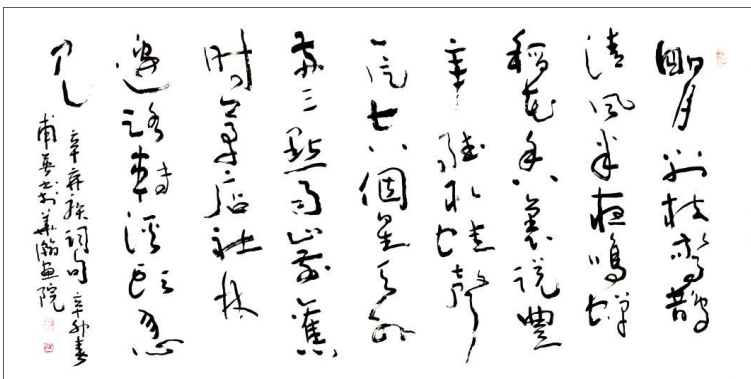 明月别枝驚鵲
清風半夜鳴蟬
稻花香裏説豐
年聽取蛙聲
一片七八個星天外
兩三點雨山前舊
時茅店社林
邊路轉溪橋忽
見
辛弃疾詞句 辛卯春
甫英書於華瀚畫院